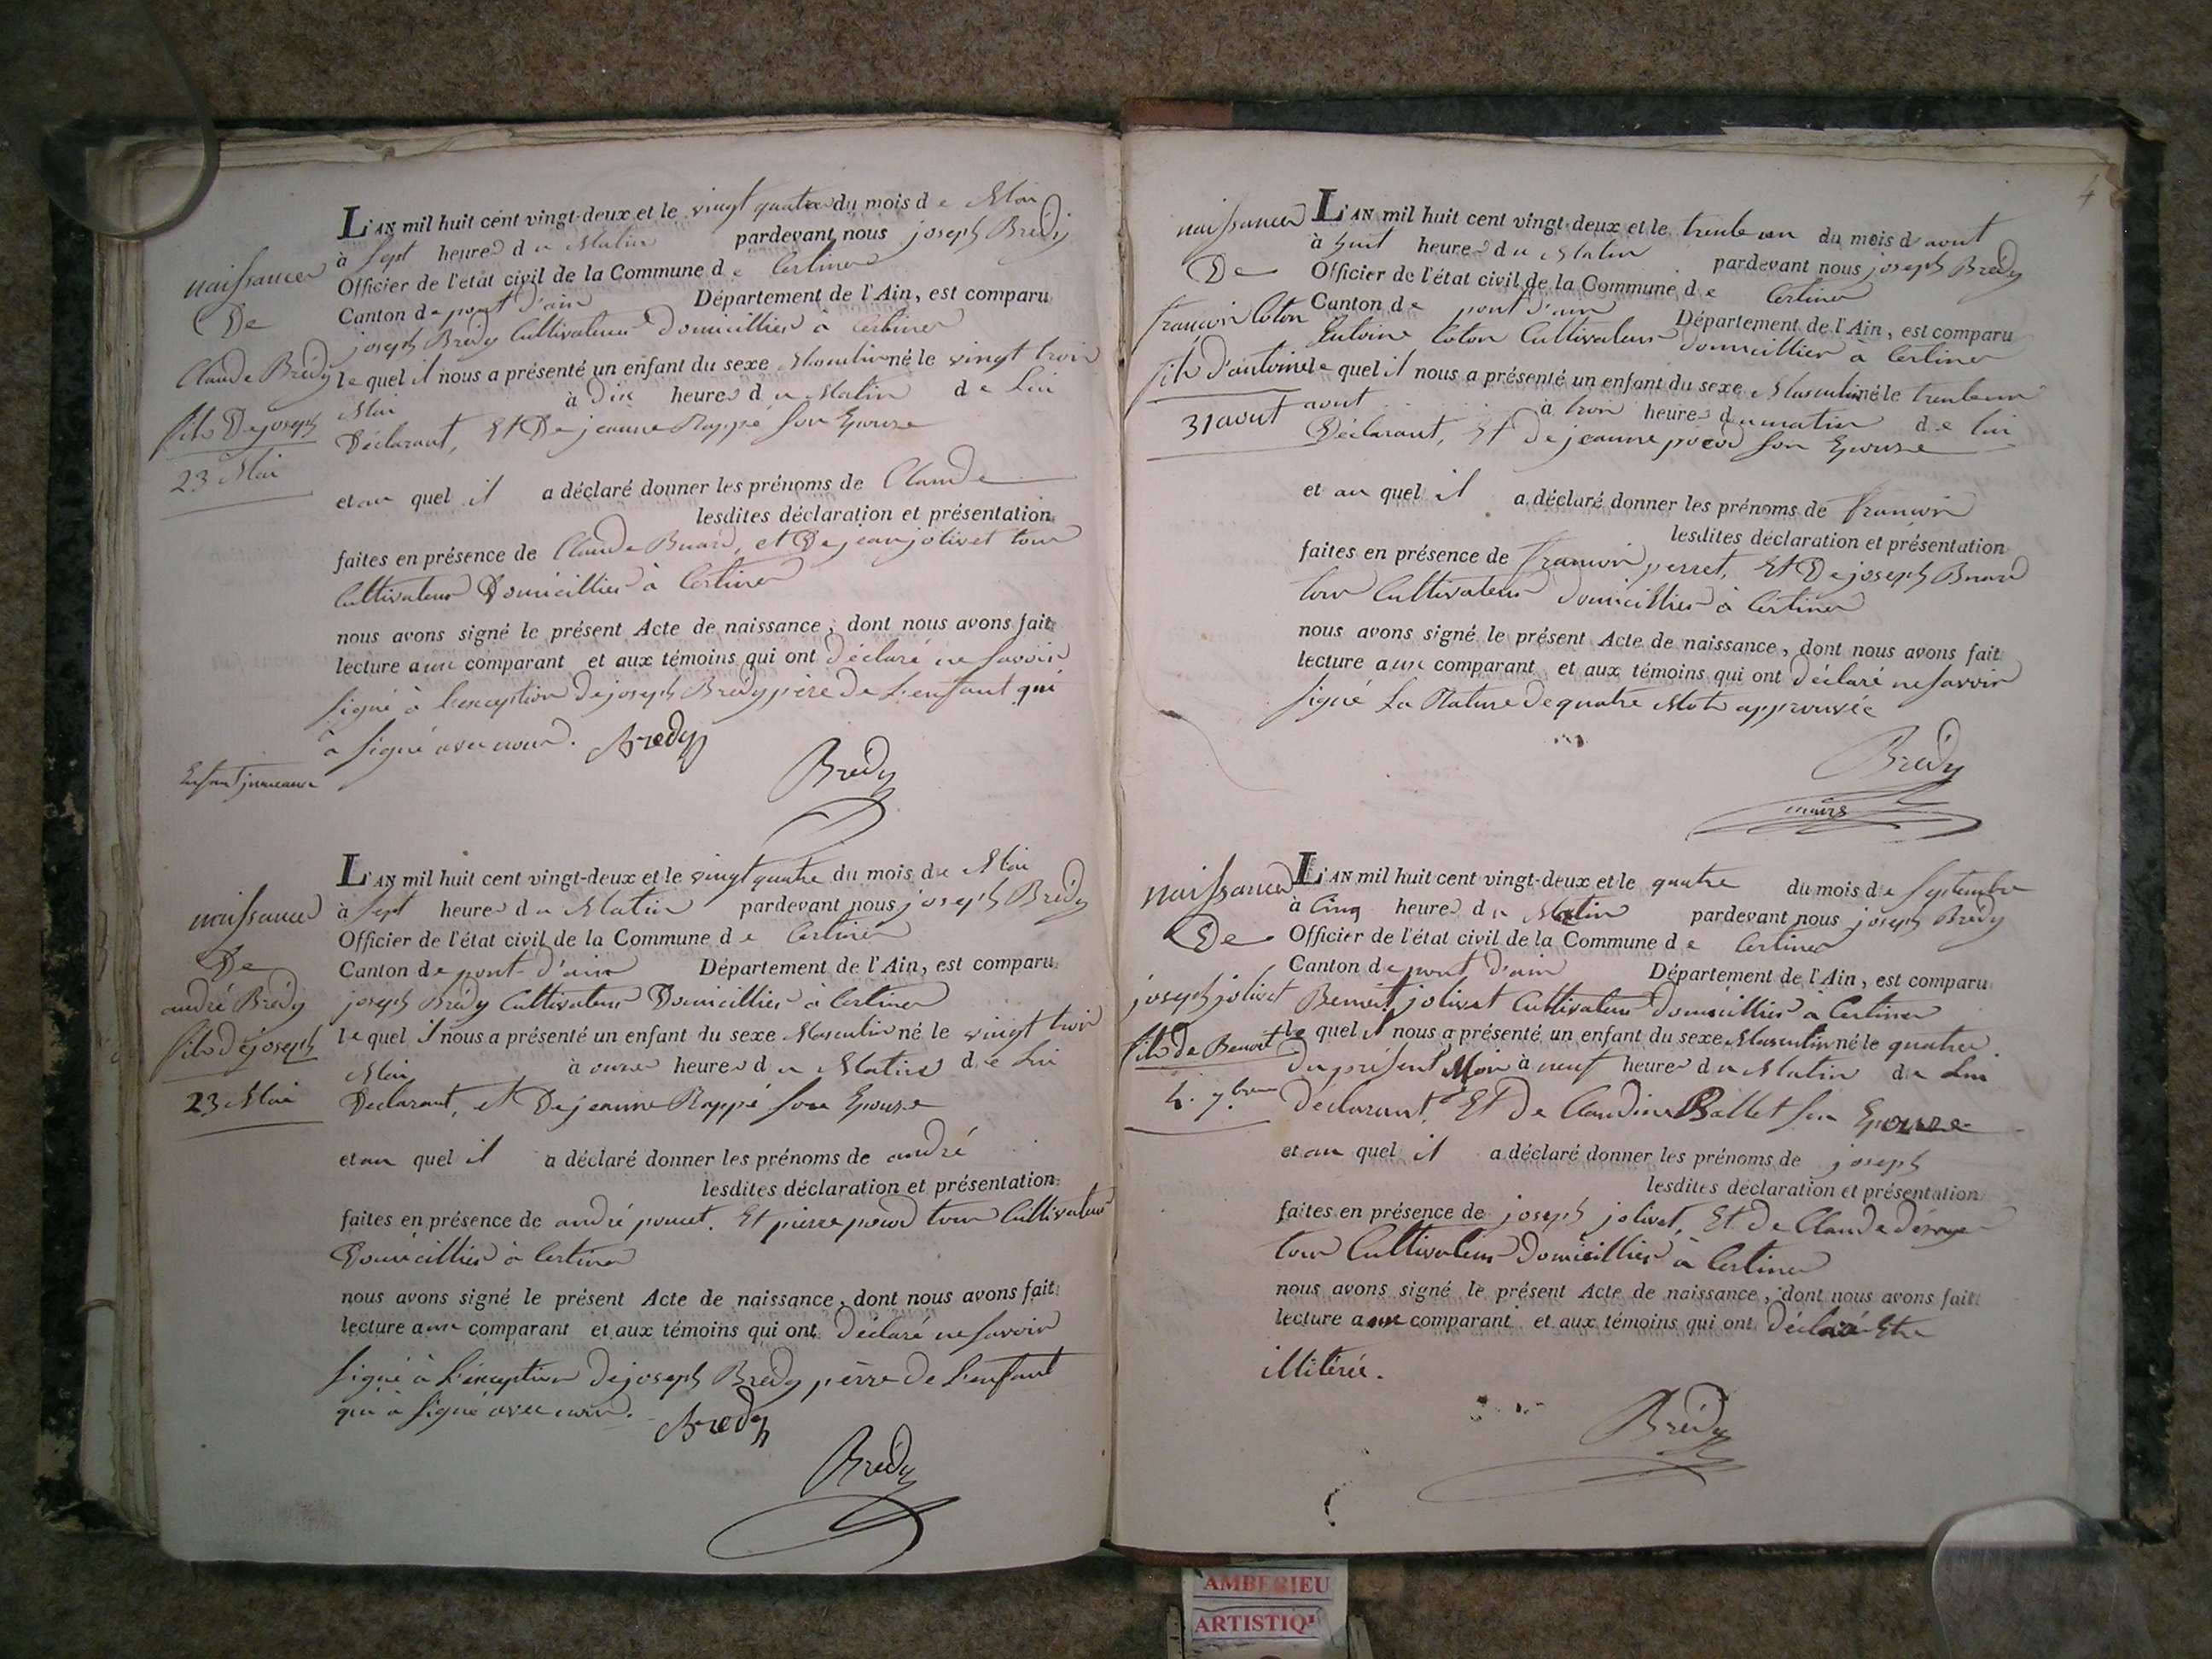 naissance
De
Claude Brédy
fils De joseph
23 Mai
L'AN mil huit cent vingt-deux et le vingt quatre du mois de Mai
à Sept heures du Matin pardevant nous joseph Brédy
Officier de l'état civil de la Commune de Certines
Canton de pont d'ain Département de l'Ain, est comparu
joseph Brédy Cultivateur Domicillier à Certines
le quel il nous a présenté un enfant du sexe Masculin né le vingt trois
Mai à Dix heures du Matin de Lui
Déclarant, Et De jeanne Rappé son Epouse
et au quel il a déclaré donner les prénoms de Claude
lesdites déclaration et présentation
faites en présence de Claude Buard, et De jean jolivet tous
Cultivateurs Domicilliés à Certines
nous avons signé le présent Acte de naissance, dont nous avons fait
lecture aux comparant et aux témoins qui ont Déclaré ne Savoir
Signé à l'exception De joseph Brédy père De L'enfant qui
à Signé avec nous. Bredy
Brédy
Enfant jumeaux
naissance
De
andré Brédy
fils De joseph
23 Mai
L'AN mil huit cent vingt-deux et le vingt quatre du mois de Mai
à Sept heures du Matin pardevant nous joseph Brédy
Officier de l'état civil de la Commune de Certines
Canton de pont d'ain Département de l'Ain, est comparu
joseph Brédy Cultivateur Domicillier à Certines
le quel il nous a présenté un enfant du sexe Masculin né le vingt trois
Mai à onze heures du Matin de Lui
Déclarant, et De jeanne Rappé son Epouse
et au quel il a déclaré donner les prénoms de andré
lesdites déclaration et présentation
faites en présence de andré poncet, Et pierre pocod tous Cultivateurs
Domicilliés à Certines
nous avons signé le présent Acte de naissance, dont nous avons fait
lecture aux comparant et aux témoins qui ont Déclaré ne Savoir
Signé à L'exception De joseph Brédy père De L'enfant
qui à Signé avec nous. Bredy
Brédy
4
naissance
De
françois Coton
fils D'antoine
31 aout
L'AN mil huit cent vingt-deux et le trente un du mois d'aout
à huit heures du Matin pardevant nous joseph Brédy
Officier de l'état civil de la Commune de Certines
Canton de pont d'ain Département de l'Ain, est comparu
Antoine Coton Cultivateur Domicillier à Certines
le quel il nous a présenté un enfant du sexe Masculin né le trente un
aout à trois heures du matin de lui
Déclarant, Et De jeanne pocod Son Epouse
et au quel il a déclaré donner les prénoms de françois
lesdites déclaration et présentation
faites en présence de françois perret, Et De joseph Buard
tous Cultivateurs Domicilliés à Certines
nous avons signé le présent Acte de naissance, dont nous avons fait
lecture aux comparant et aux témoins qui ont Déclaré ne Savoir
Signé La Rature De quatre Mots approuvée
Brédy
maire
naissance
De
joseph jolivet
fils de Benoit
4. 7.bre
L'AN mil huit cent vingt-deux et le quatre du mois de Septembre
à Cinq heures du Matin pardevant nous joseph Brédy
Officier de l'état civil de la Commune de Certines
Canton de pont D'ain Département de l'Ain, est comparu
Benoit jolivet Cultivateur Domicillier à Certines
le quel il nous a présenté un enfant du sexe Masculin né le quatre
Du présent Mois à neuf heures du Matin de Lui
Déclarant, Et De Claudine Ballet son Epouse
et au quel il a déclaré donner les prénoms de joseph
lesdites déclaration et présentation
faites en présence de joseph jolivet, Et De Claude
tous Cultivateurs Domicilliés à Certines
nous avons signé le présent Acte de naissance, dont nous avons fait
lecture aux comparant et aux témoins qui ont Déclaré Etre
illitérée.
Brédy
AMBERIEU
ARTISTIQ